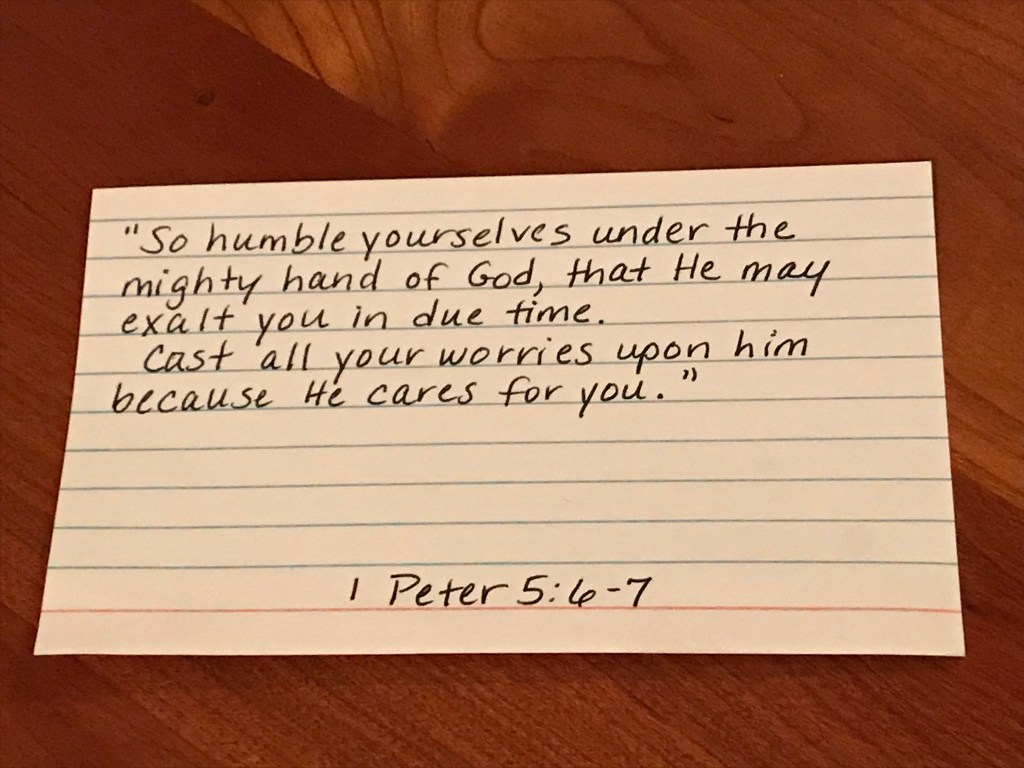 "So humble yourselves under the
mighty hand of God, that He may
exalt you in due time.
Cast all your worries upon him
because He cares for you."
1 Peter 5:6-7